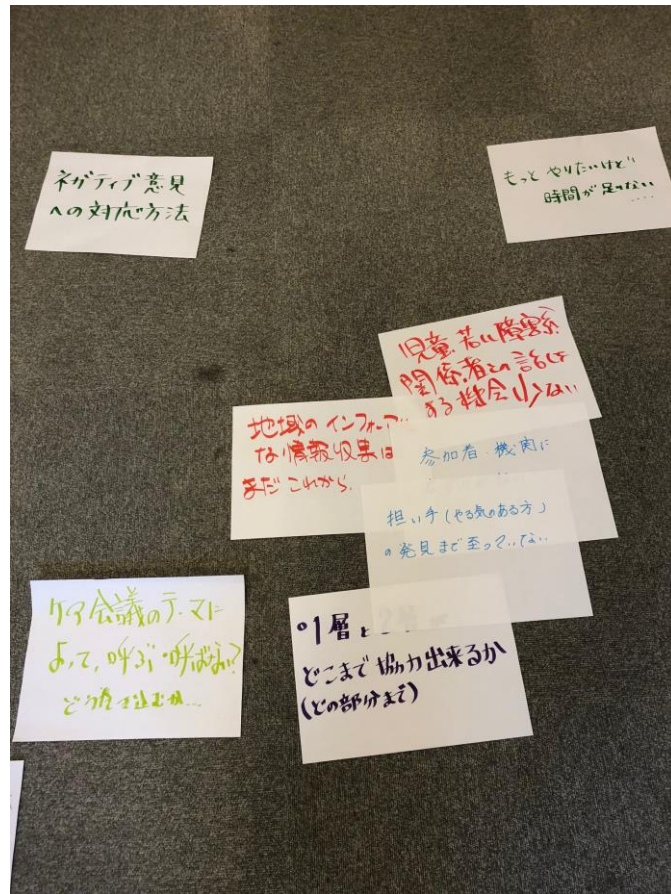 ネガティブ意見
への対応方法
もっと やりたいけど
時間が足りない
....
児童、若い障害系
関係者との話しは
ある機会少ない
地域の インフォーマル
な情報収集は
まだこれから.
参加者・機関に
担い手(やる気のある方)
の発見まで至っていない
ケア会議のテーマに
よって、呼ぶ・呼ばない?
。1層と2層が
どこまで協力出来るか
(どの部分まで)